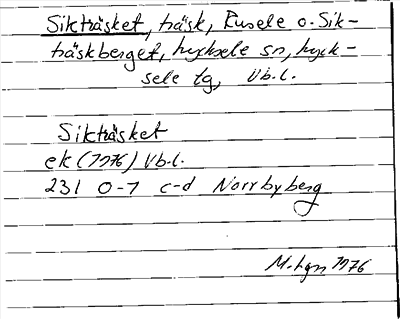 Sikträsket, träsk, Rusele o. Sik-
träskberget, Lycksele sn, Lyck-
sele tg, Vb.l.
Sikträsket
ek (1976) Vb.l.
231 0-1 c-d Norrbyberg
M.hgn 1976